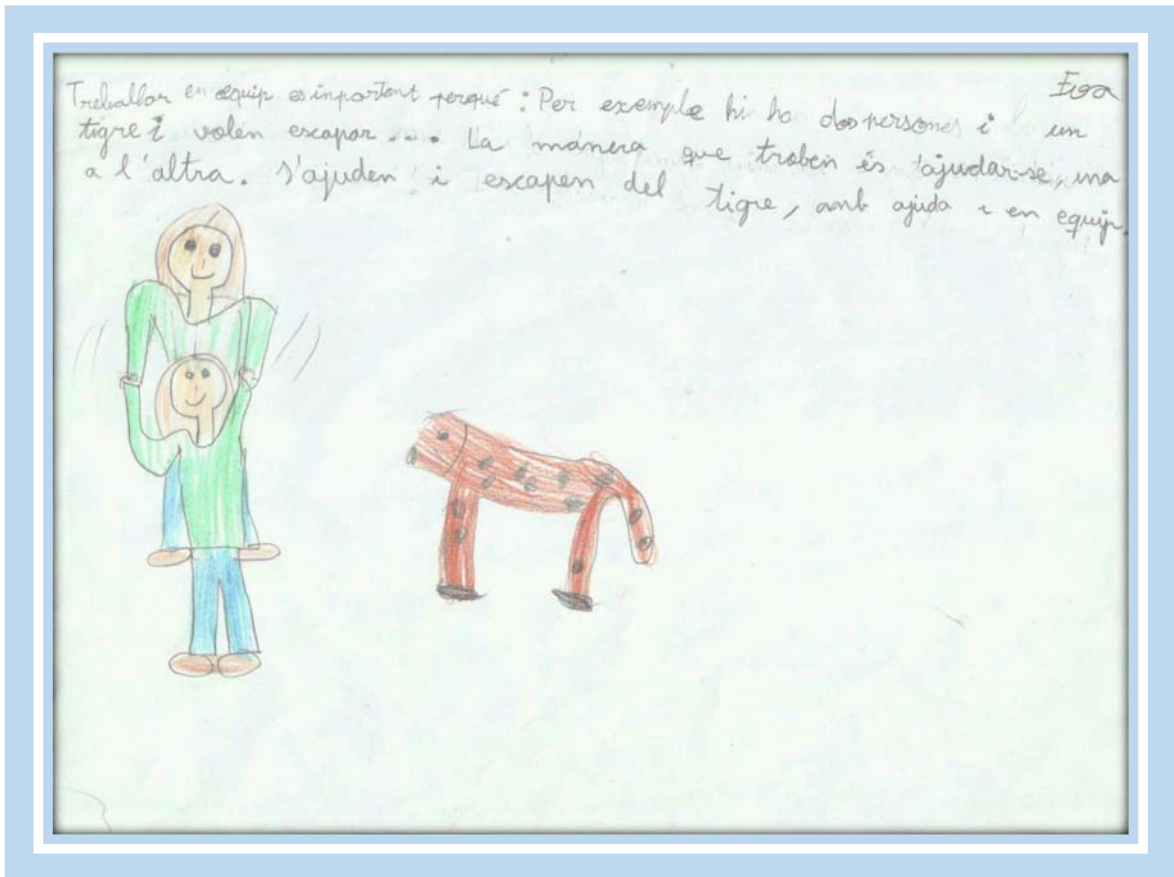 Eva
Treballar en equip es inportant perqué: Per exemple hi ha dos persones i un
tigre i volen escapar... La mánera que troben és ajudar-se, una
a l'altra. S'ajuden i escapen del tigre, amb ajuda i en equip.